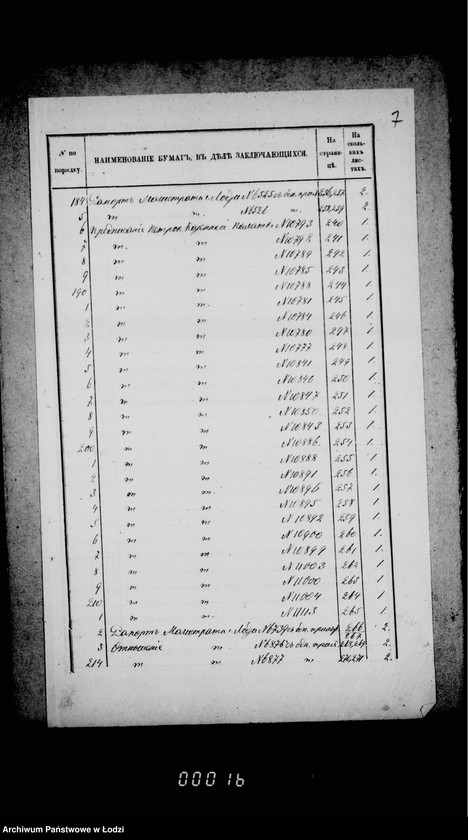 7
№ по порядку.
НАИМЕНОВАНІЕ БУМАГЪ, ВЪ ДѢЛѢ ЗАКЛЮЧАЮЩИХСЯ.
На страницѣ.
На сколькихъ листахъ.
184 Рапортъ Магистрата г. Лодзи № 6525 съ 2.
5 " " № 1526 " 258,259 2
6 Предписаніе Петрок. Казенной Палаты № 10793 240 1.
7 " " № 10792 241 1.
8 " " № 10789 242 1.
9 " " № 10785 243 1.
190 " " № 10788 244 1.
1 " " № 10781 245 1.
2 " " № 10784 246 1.
3 " " № 10780 247 1.
4 " " № 10777 248 1.
5 " " № 10841 249 1.
6 " " № 10840 250 1.
7 " " № 10847 251 1.
8 " " № 10850 252 1.
9 " " № 10843 253 1.
200 " " № 10886 254 1.
1 " " № 10888 255 1.
2 " " № 10891 256 1.
3 " " № 10896 257 1.
4 " " № 10895 258 1.
5 " " № 10892 259 1.
6 " " № 10900 260 1.
7 " " № 10899 261 1.
8 " " № 11003 262 1.
9 " " № 11000 263 1.
210 " " № 11004 264 1.
1 " " № 11113 265 1.
2 Рапортъ Магистрата г. Лодзи № 6739 съ 266 267 2.
3 Отношеніе " № 6876 съ 268,269 2.
214 " " № 6877 " 270,271 2.
00016
Archiwum Państwowe w Łodzi